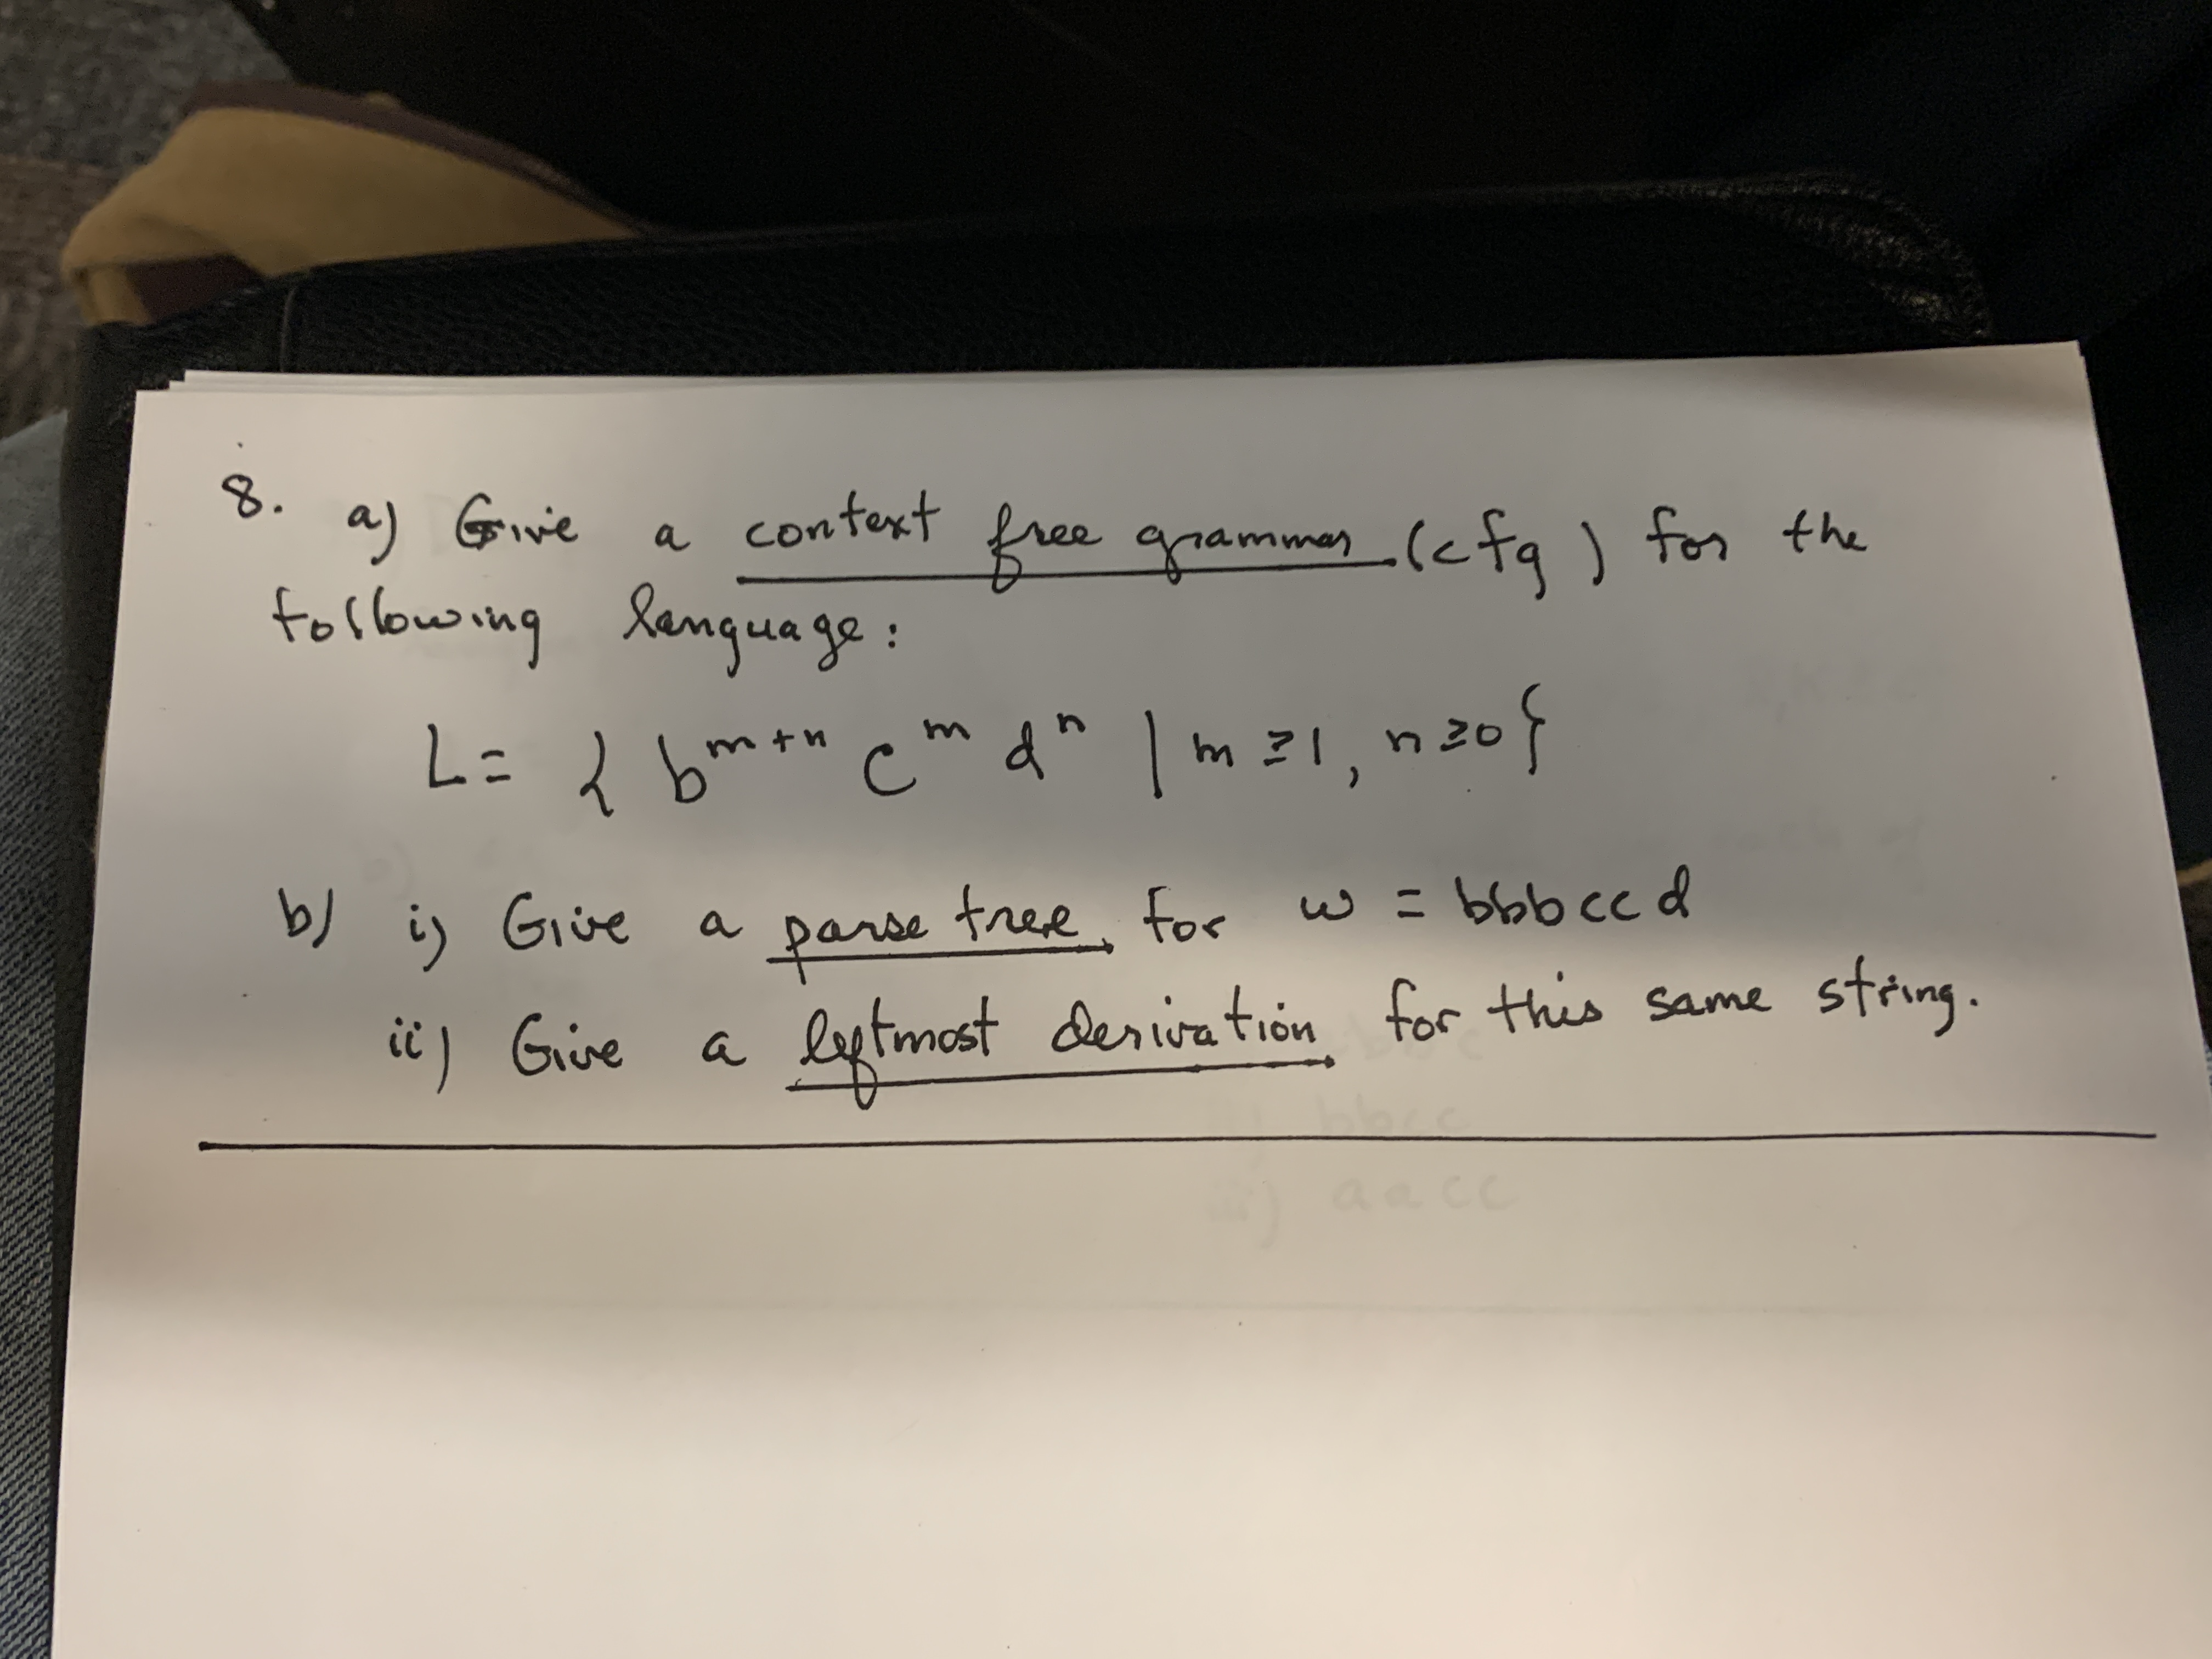 8. a) Give a context free grammar (cfg) for the
following language:
L = { b^m+n c^m d^n | m ≥ 1, n ≥ 0 }
b) i) Give a parse tree for w = bbbccd
ii) Give a leftmost derivation for this same string.